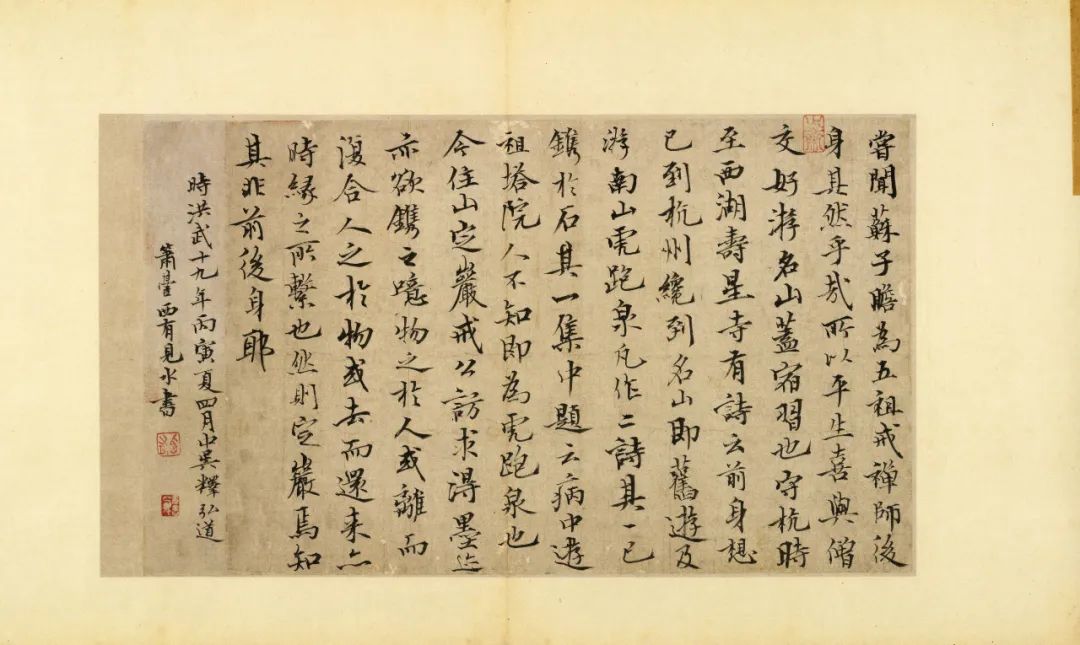 嘗聞蘇子瞻為五祖戒禪師後
身其然乎哉所以平生喜與僧
交好游名山蓋宿習也守杭時
至西湖壽星寺有詩云前身想
已到杭州纔到名山即舊遊及
游南山虎跑泉凡作二詩其一已
鐫於石其一集中題云病中遊
祖塔院人不知即為虎跑泉也
今住山定巖戒公訪求得墨迹
亦欲鐫之噫物之於人或離而
復合人之於物或去而還来亦
時緣之所繫也然則定巖焉知
其非前後身耶
時洪武十九年丙寅夏四月中吳釋弘道
簫臺西有見水書